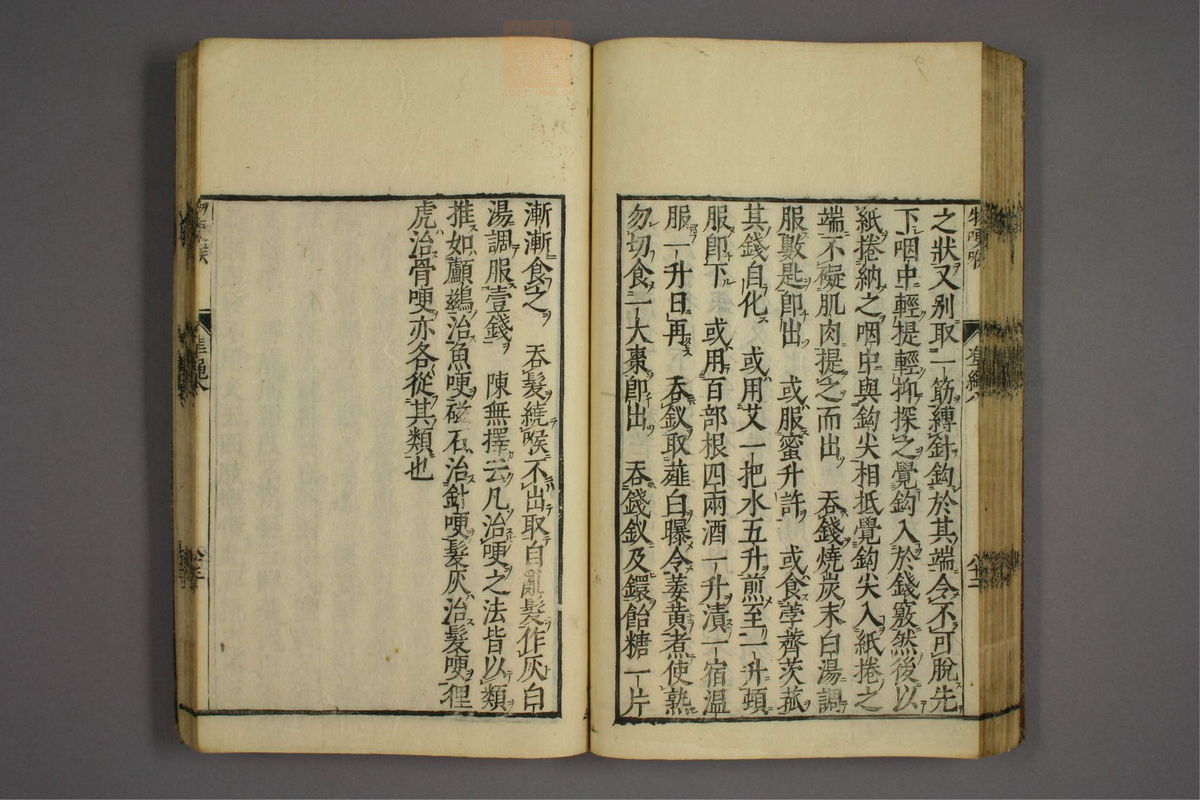 之狀又别取一筋縛針鈎於其端令不可脫先
下咽中輕提輕抑探之覺鈎入於錢竅然後以
紙捲納之咽中與鈎尖相抵覺鈎尖入紙捲之
端不礙肌肉提之而出　吞錢燒炭末白湯調
服數匙即出　或服蜜升許　或食荸薺茨菰
其錢自化　或用艾一把水五升煎至一升頓
服即下　或用百部根四兩酒一升漬一宿温
服一升日再　吞釵取薤白曝令萎黄煮使熟
勿切食一大束即出　吞錢釵及鐶飴糖一片
漸漸食之　吞髮繞喉不出取自亂髮作灰白
湯調服壹錢　陳無擇云凡治哽之法皆以類
推如鸕鷀治魚哽磁石治針哽髮灰治髮哽狸
虎治骨哽亦各從其類也